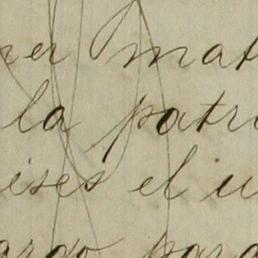 rer mat
la patri
ises el u
argo para